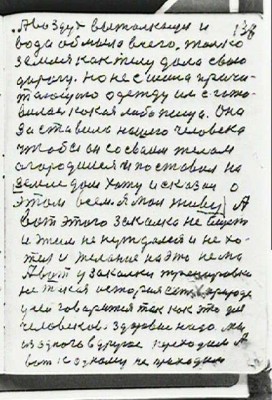 Авоздух выталкеще и 136
вода обмыла всего. только
земля как телу дала свою
дорогу. Но не сшила прича-
тающую одежду ни с гото-
вилась какая либо пища. Она
заставила нашего человека
чтобы он со своим телом
огородился и поставил на
земле дом хату и сказал о
этом всем. я мол живу. А
вот этого закалка не ищет
и этим не нуждается и не хо-
тел и желание на это нема
А вот у закалки тренировки
не такая история есть в природе
у ней говорится так как это для
человеков. здоровье надо. мы
из одного в другое переходим А
вот к одному не приходим